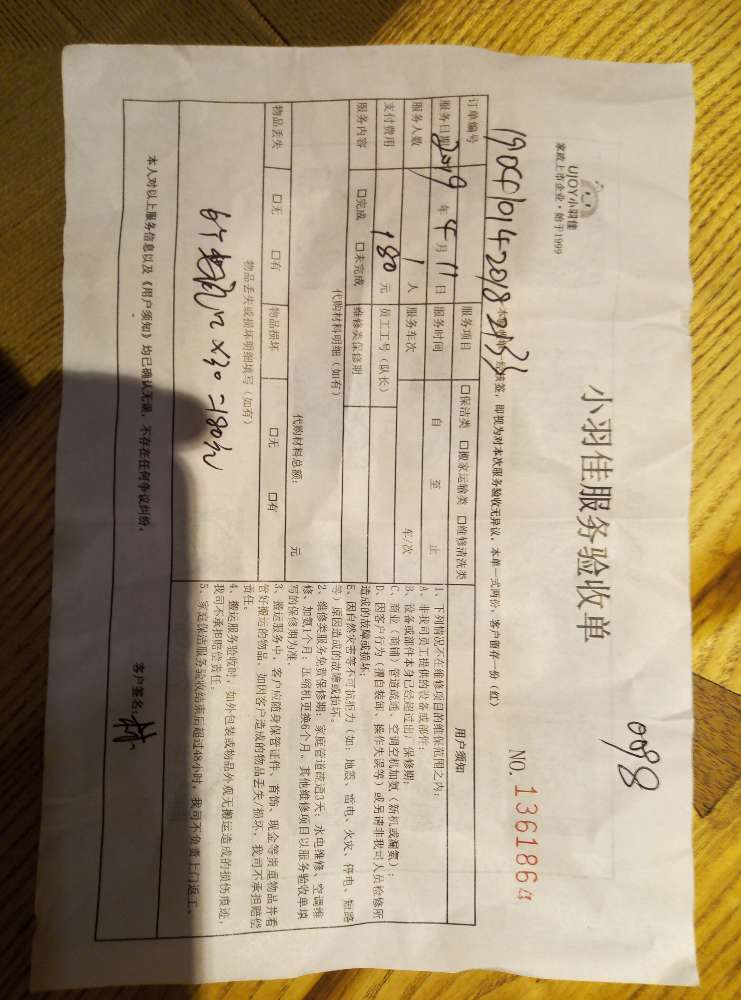 UJOY小羽佳
家政上市企业·始于1999
小羽佳服务验收单
0098
NO. 1361864
本 签，即视为对本次服务验收无异议，本单一式两份，客户留存一份（红）
订单编号 服务项目 □保洁类 □搬家运输类 □维修清洗类
服务日期 2019 年 4 月 11 日 服务时间 自 至 止
服务人数 1 人 服务车次 车/次
支付费用 180 元 员工工号（队长）
服务内容 □完成 □未完成 维修类保修期
代购材料明细（如有）
代购材料总额： 元
物品丢失 □无 □有 物品损坏 □无 □有
物品丢失或损坏明细填写（如有）
x30=180元
用户须知
1、下列情况不在维修项目的维保范围之内：
A、非我司员工提供的设备或部件；
B、设备或部件本身已经超过出厂保修期；
C、商业（商铺）管道疏透、空调空机加氨（新机或漏氨）；
D、因客户行为（擅自装卸、操作失误等）或另请非我司人员检修所
造成的故障或损坏；
E、因自然灾害等不可抗拒力（如：地震、雷电、火灾、停电、短路
等）原因造成的故障或损坏。
2、维修类服务免费保修期：家庭管道疏通3天；水电维修、空调维
修、加氨1个月；压缩机更换6个月。其他维修项目以服务验收单填
写的保修期为准。
3、搬运服务中，客户应随身保管证件、首饰、现金等贵重物品并看
管好搬运的物品，如因客户造成的物品丢失/损坏，我司不承担赔偿
责任。
4、搬运服务验收时，如外包装或物品外观无搬运造成的损伤痕迹，
我司不承担赔偿责任。
5、家庭保洁服务验收结束后超过48小时，我司不负责上门返工。
本人对以上服务信息以及《用户须知》均已确认无误，不存在任何争议纠纷。
客户签名：林